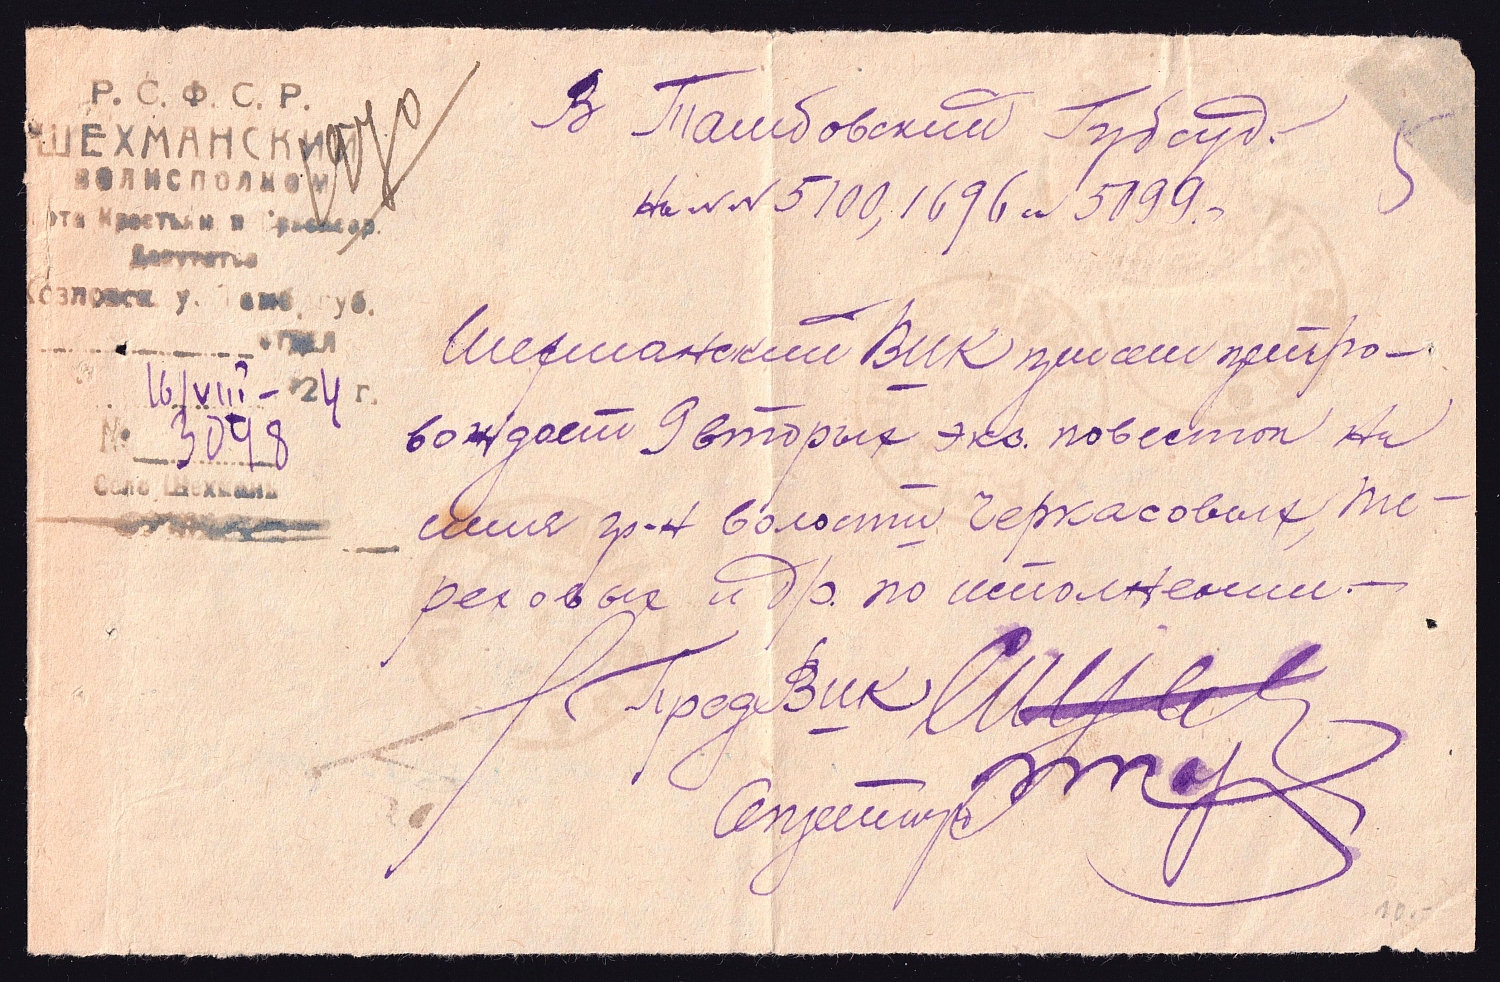 Р. С. Ф. С. Р.
ШЕХМАНСКИЙ
ВОЛИСПОЛКОМ
Крестьян и
Депутатов
Козловск у. Тамб. губ.
отдел
16/VIII - 24 г.
№ 3098
Село Шехмань
В Тамбовский Губсуд.-
На №№ 5100, 1696 и 5099.-
Шехманский ВИК при сем препро-
вождает 9 вторых экз. повесток на
имя гр-н волости Черкасовых, Те-
реховых и др. по исполнении.-
Пред ВИК
Секретарь
10.-